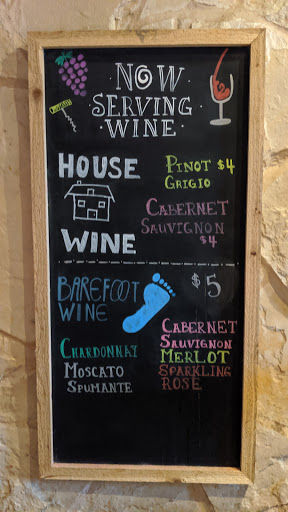 NOW
SERVING
WINE
HOUSE
WINE
PINOT $4
GRIGIO
CABERNET
SAUVIGNON
$4
BAREFOOT
WINE
$5
CHARDONNAY
MOSCATO
SPUMANTE
CABERNET
SAUVIGNON
MERLOT
SPARKLING
ROSE